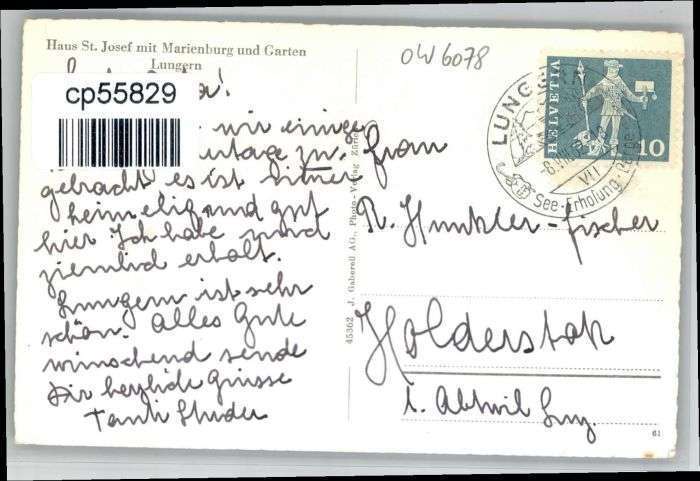 Haus St. Josef mit Marienburg und Garten
Lungern
OW 6078
cp55829
wir einige
gebracht es ist immer
heimelig und gut
hier Ich habe mich
ziemlich erholt.
Lungern ist sehr
schön. Alles Gute
wünschend sende
Dir herzliche Grüsse
Tante Studer
45362 J. Gaberell AG., Photo-Verlag
HELVETIA
10
LUNGERN
VII
See-Erholung
Frau
R. Hunkler-Fischer
Holderstok
i. Abtwil Luz.
61